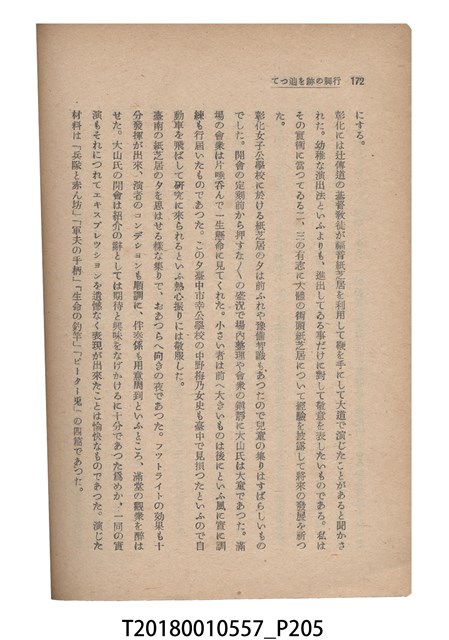 172 行脚の跡を追つて
にする。
彰化には辻傳道の基督教徒が福音紙芝居を利用して鞭を手にして大道で演じたことがあると聞かさ
れた。幼稚な演出法といふよりも、進出してゐる事だけに對して敬意を表したいものである。私は
その實演に當つてゐる二、三の有志に大體の街頭紙芝居について經驗を披露して將來の發展を祈つ
た。
彰化女子公學校に於ける紙芝居の夕は前ふれや豫備智識もあつたので兒童の集りはすばらしいもの
でした。開會の定刻前から押すな〳〵の盛況で場內整理や會衆の鎭靜に大山氏は大童であつた。滿
場の會衆は片唾呑んで一生懸命に見てくれた。小さい者は前へ大きいものは後にといふ風に實に訓
練も行屆いたものであつた。この夕臺中市幸公學校の中野梅乃女史も臺中で見損つたといふので自
動車を飛ばして硏究に來られるといふ熱心振りには敬服した。
臺南の紙芝居の夕を思はせる樣な集りで、おあつらへ向きの夜であつた。フツトライトの効果も十
分發揮が出來、演者のコンデシヨンも順調に、伴奏係も用意周到といふところ、滿堂の觀衆を醉は
せた。大山氏の開會は紹介の辭としては期待と興味をなげかけるに十分であつた爲めか、一同の實
演もそれにつれてエキスプレツシヨンを遺憾なく表現が出來たことは愉快なものであつた。演じた
材料は「兵隊と赤ん坊」「軍夫の手柄」「生命の釣竿」「ピーター兎」の四篇であつた。
T20180010557_P205